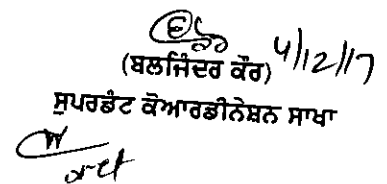 (ਬਲਜਿੰਦਰ ਕੌਰ) 4/12/17
ਸੁਪਰਡੰਟ ਕੋਆਰਡੀਨੇਸ਼ਨ ਸਾਖਾ